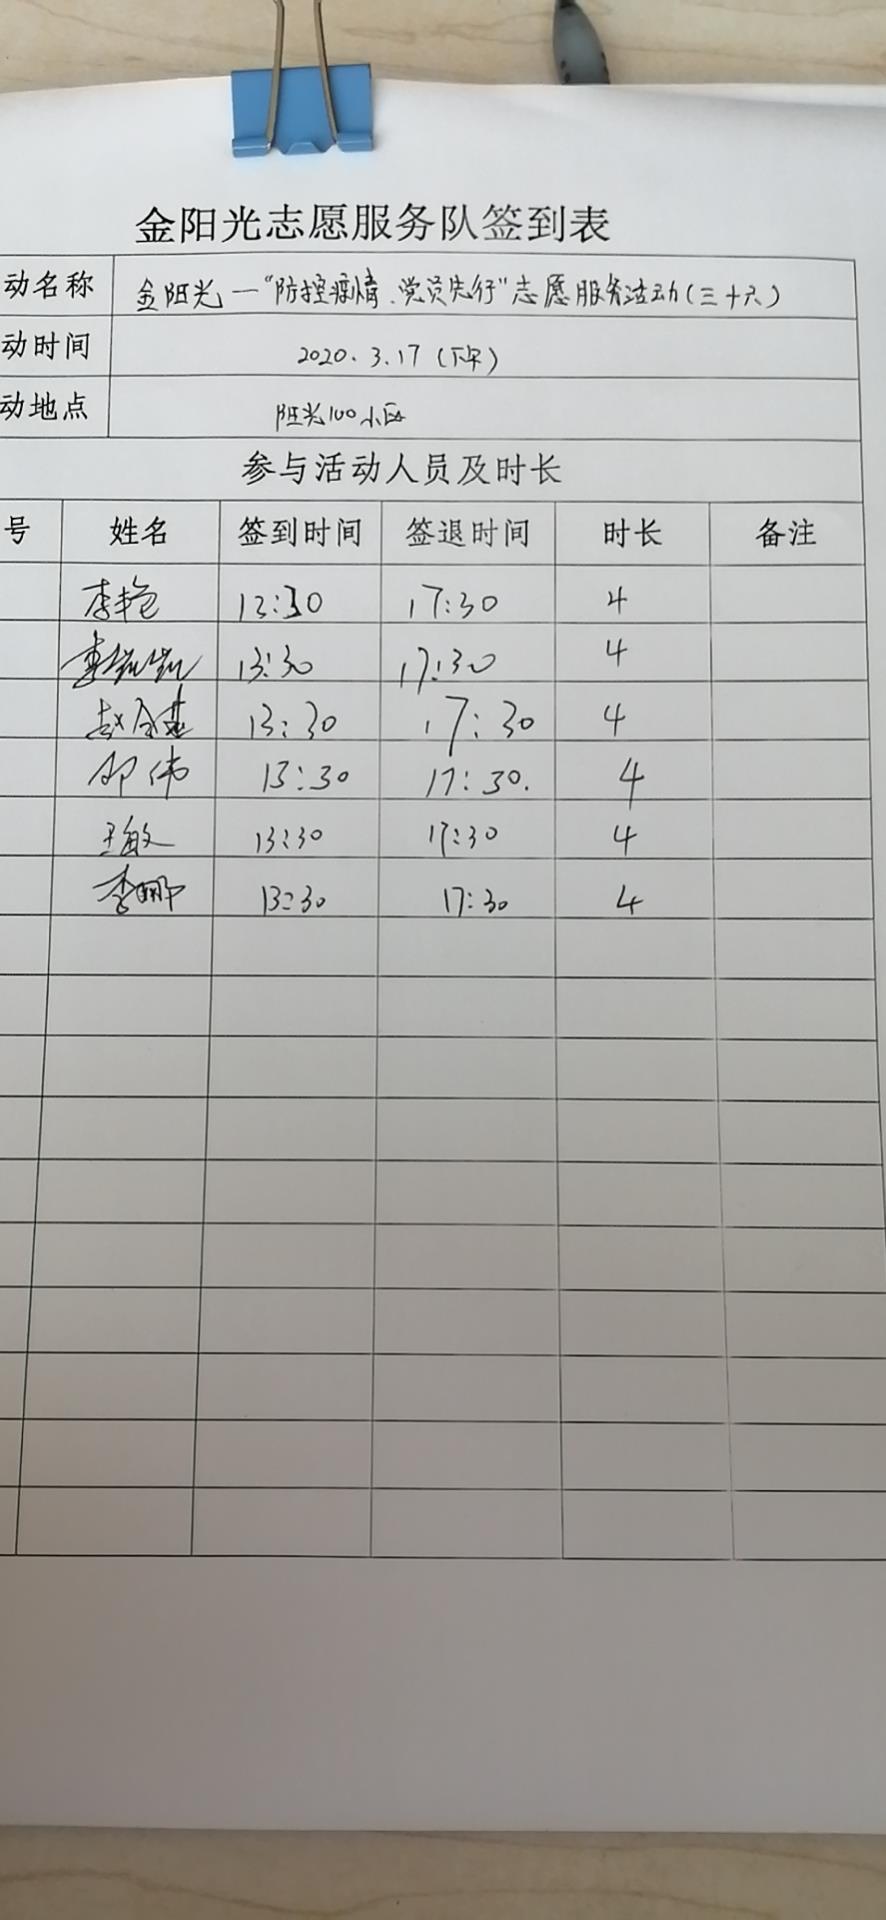 金阳光志愿服务队签到表
动名称 金阳光一“防控疫情、党员先行”志愿服务活动(三十六)
动时间 2020.3.17(下午)
动地点 阳光100小区
参与活动人员及时长
号 姓名 签到时间 签退时间 时长 备注
李艳 13:30 17:30 4
13:30 17:30 4
赵 13:30 17:30 4
邹伟 13:30 17:30. 4
王敏 13:30 17:30 4
李娜 13:30 17:30 4